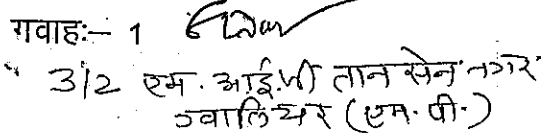 गवाहः- 1
312 एम. आई.जी तानसेन नगर
ग्वालियर (एम. पी.)